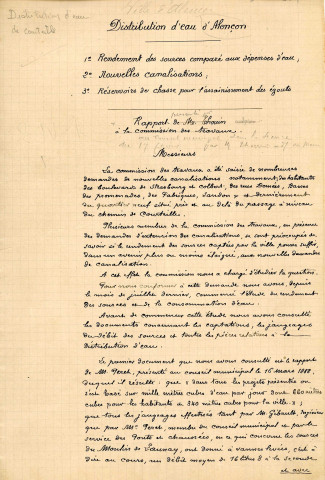 Distribution d'eau
de courteille
Distribution d'eau d'Alençon
1° Rendement des sources comparé aux dépenses d'eau;
2° Nouvelles canalisations;
3° Réservoirs de chasse pour l'assainissement des égouts
Rapport de Mr.
à la commission des travaux.
Messieurs
La commission des travaux a été saisie de nombreuses
demandes de nouvelles canalisations notamment, des habitants
des boulevards de Strasbourg et Colbert, des rues Basses
des promenades, des Fabriques, Jardon et dernièrement
du quartier neuf situé près et au delà du passage à niveau
du chemin de Courteille.
Plusieurs membres de la commission des travaux, en présence
des demandes d'extension des canalisations, se sont préoccupés de
savoir si le rendement des sources captées par la ville pourra suffire,
dans un avenir plus ou moins éloigné, aux nouvelles demandes
de canalisation.
A cet effet la commission nous a chargé d'étudier la question.
Pour nous conformer à cette demande nous avons, depuis
le mois de juillet dernier, commencé l'étude du rendement
des sources et de la consommation d'eau.
Avant de commencer cette étude nous avons consulté
les documents concernant les captations, les jaugeages
du débit des sources et toutes les pièces relatives à la
distribution d'eau.
Le premier document que nous avons consulté est le rapport
de Mr Peret, présenté au conseil municipal le 16 mars 1888,
duquel il résulte: que dans tous les projets présentés on
s'est basé sur mille mètres cubes d'eau par jour dont 660 mètres
cubes pour les habitants et 340 mètres cubes pour la ville;
que tous les jaugeages effectués tant par M. Gibault, Ingénieur
que par Mr Peret, membre du conseil municipal et par le
service des Ponts et chaussées, en ce qui concerne les sources
du Moulin de Launay, ont donné à vannes levées, c'est à
dire au cours, un débit moyen de 76 litres 8 à la seconde
et avec